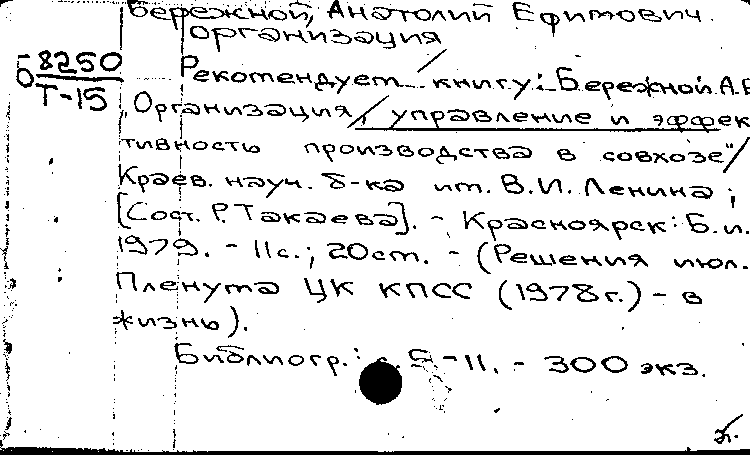 Бережной, Анатолий Ефимович.
организация
Б 8250
Т-15
Рекомендует книгу: Бережной А.Е
„Организация, управление и эффек
тивность производства в совхозе"/
Краев. науч. б-ка им. В.И. Ленина;
[Сост. Р. Такаева]. - Красноярск: Б.и.
1979. - 11с.; 20см. - (Решения июл.
Пленума ЦК КПСС (1978г.) - в
жизнь).
Библиогр.: с. 9-11. - 300 экз.